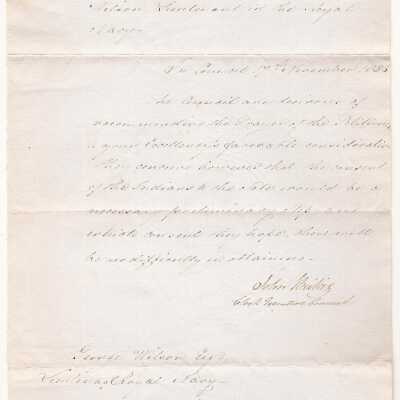 Wilson Lieutenant in the Royal
Navy.
In Council 17th November 183
The Council are desirous of
recommending the Prayer of the Petition
to your Excellency's favorable consideration
They conceive however that the consent
of the Indians to the sale would be a
necessary preliminary step and
which consent they hope there will
be no difficulty in obtaining.
John
Clerk Executive Council
George Wilson Esqr
Lieutenant Royal Navy